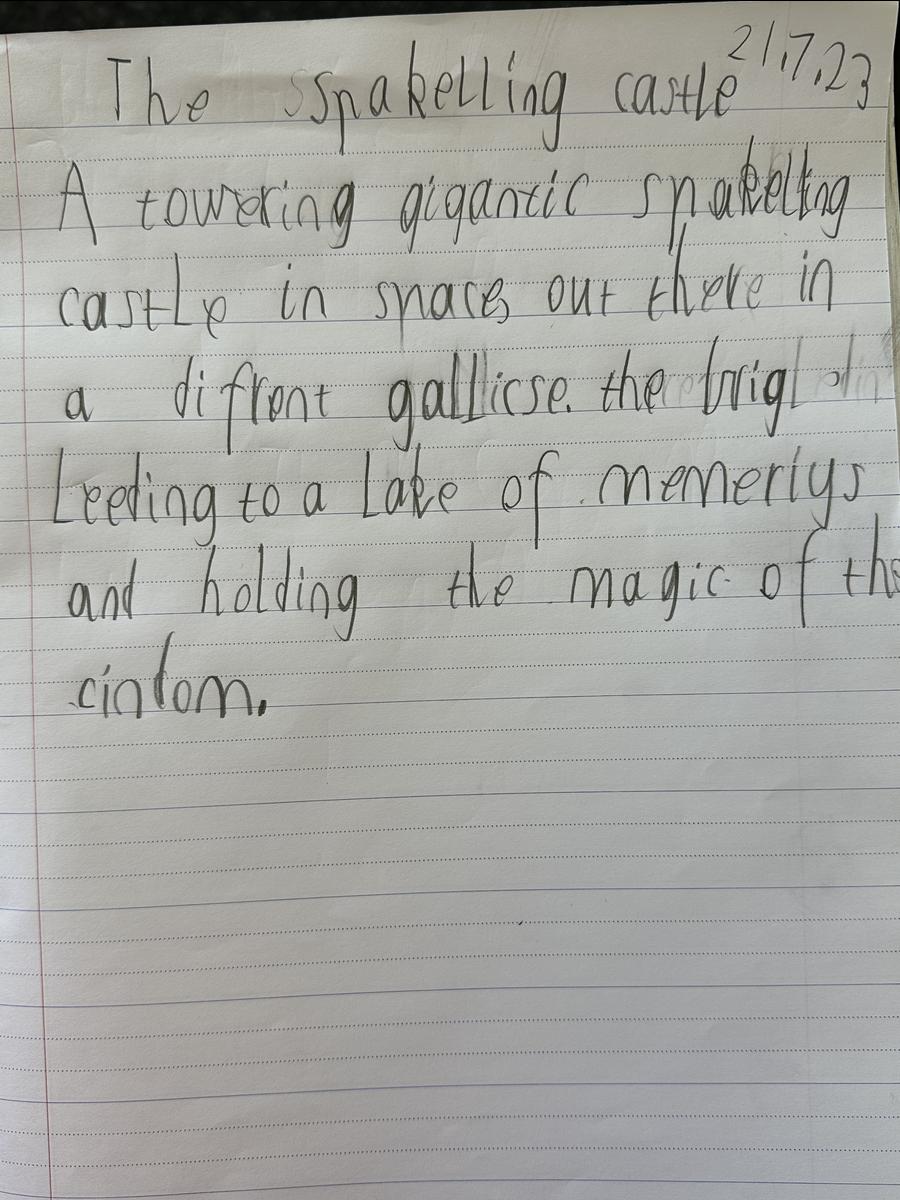 The sspakelling castle 21.7.23
A towering gigantic spakelling
castle in space out there in
a difrent gallicse. the brig
Leeding to a Lake of memeriys
and holding the magic of the
cindom.